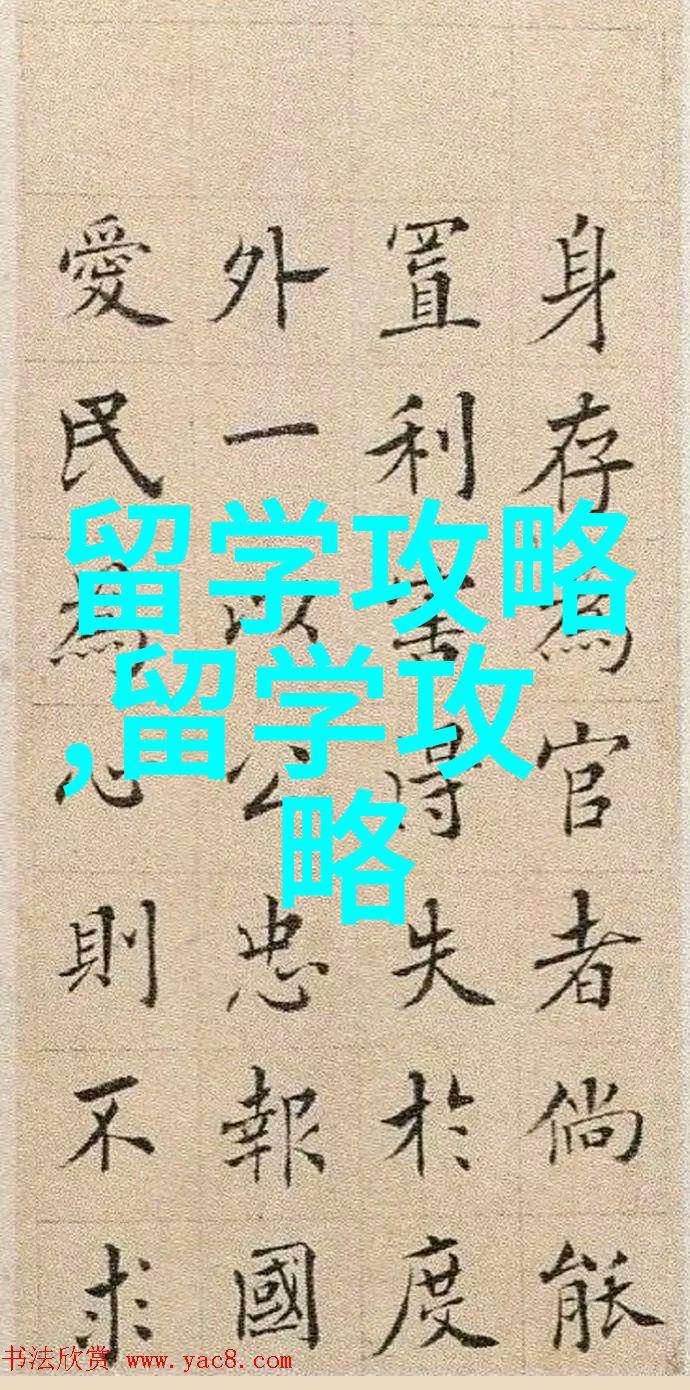 身存為官者倘能
置利害得失於度
外一以公忠報國
愛民為心則不求
留学攻略
,留学攻
略
书法欣赏 www.yac8.com